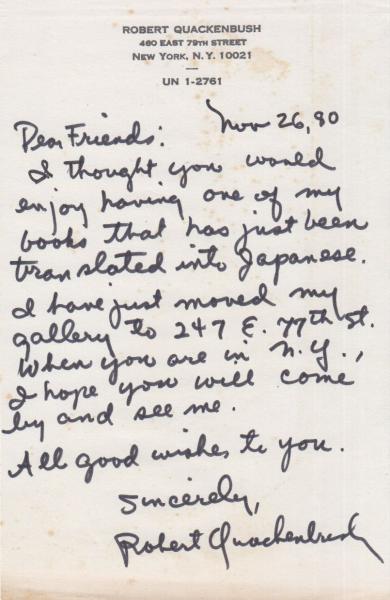 ROBERT QUACKENBUSH
460 EAST 79TH STREET
NEW YORK, N.Y. 10021
UN 1-2761
Nov 26, 80
Dear Friends:
I thought you would
enjoy having one of my
books that has just been
translated into Japanese.
I have just moved my
gallery to 247 E. 77th St.
When you are in N.Y.,
I hope you will come
by and see me.
All good wishes to you.
Sincerely,
Robert Quackenbush